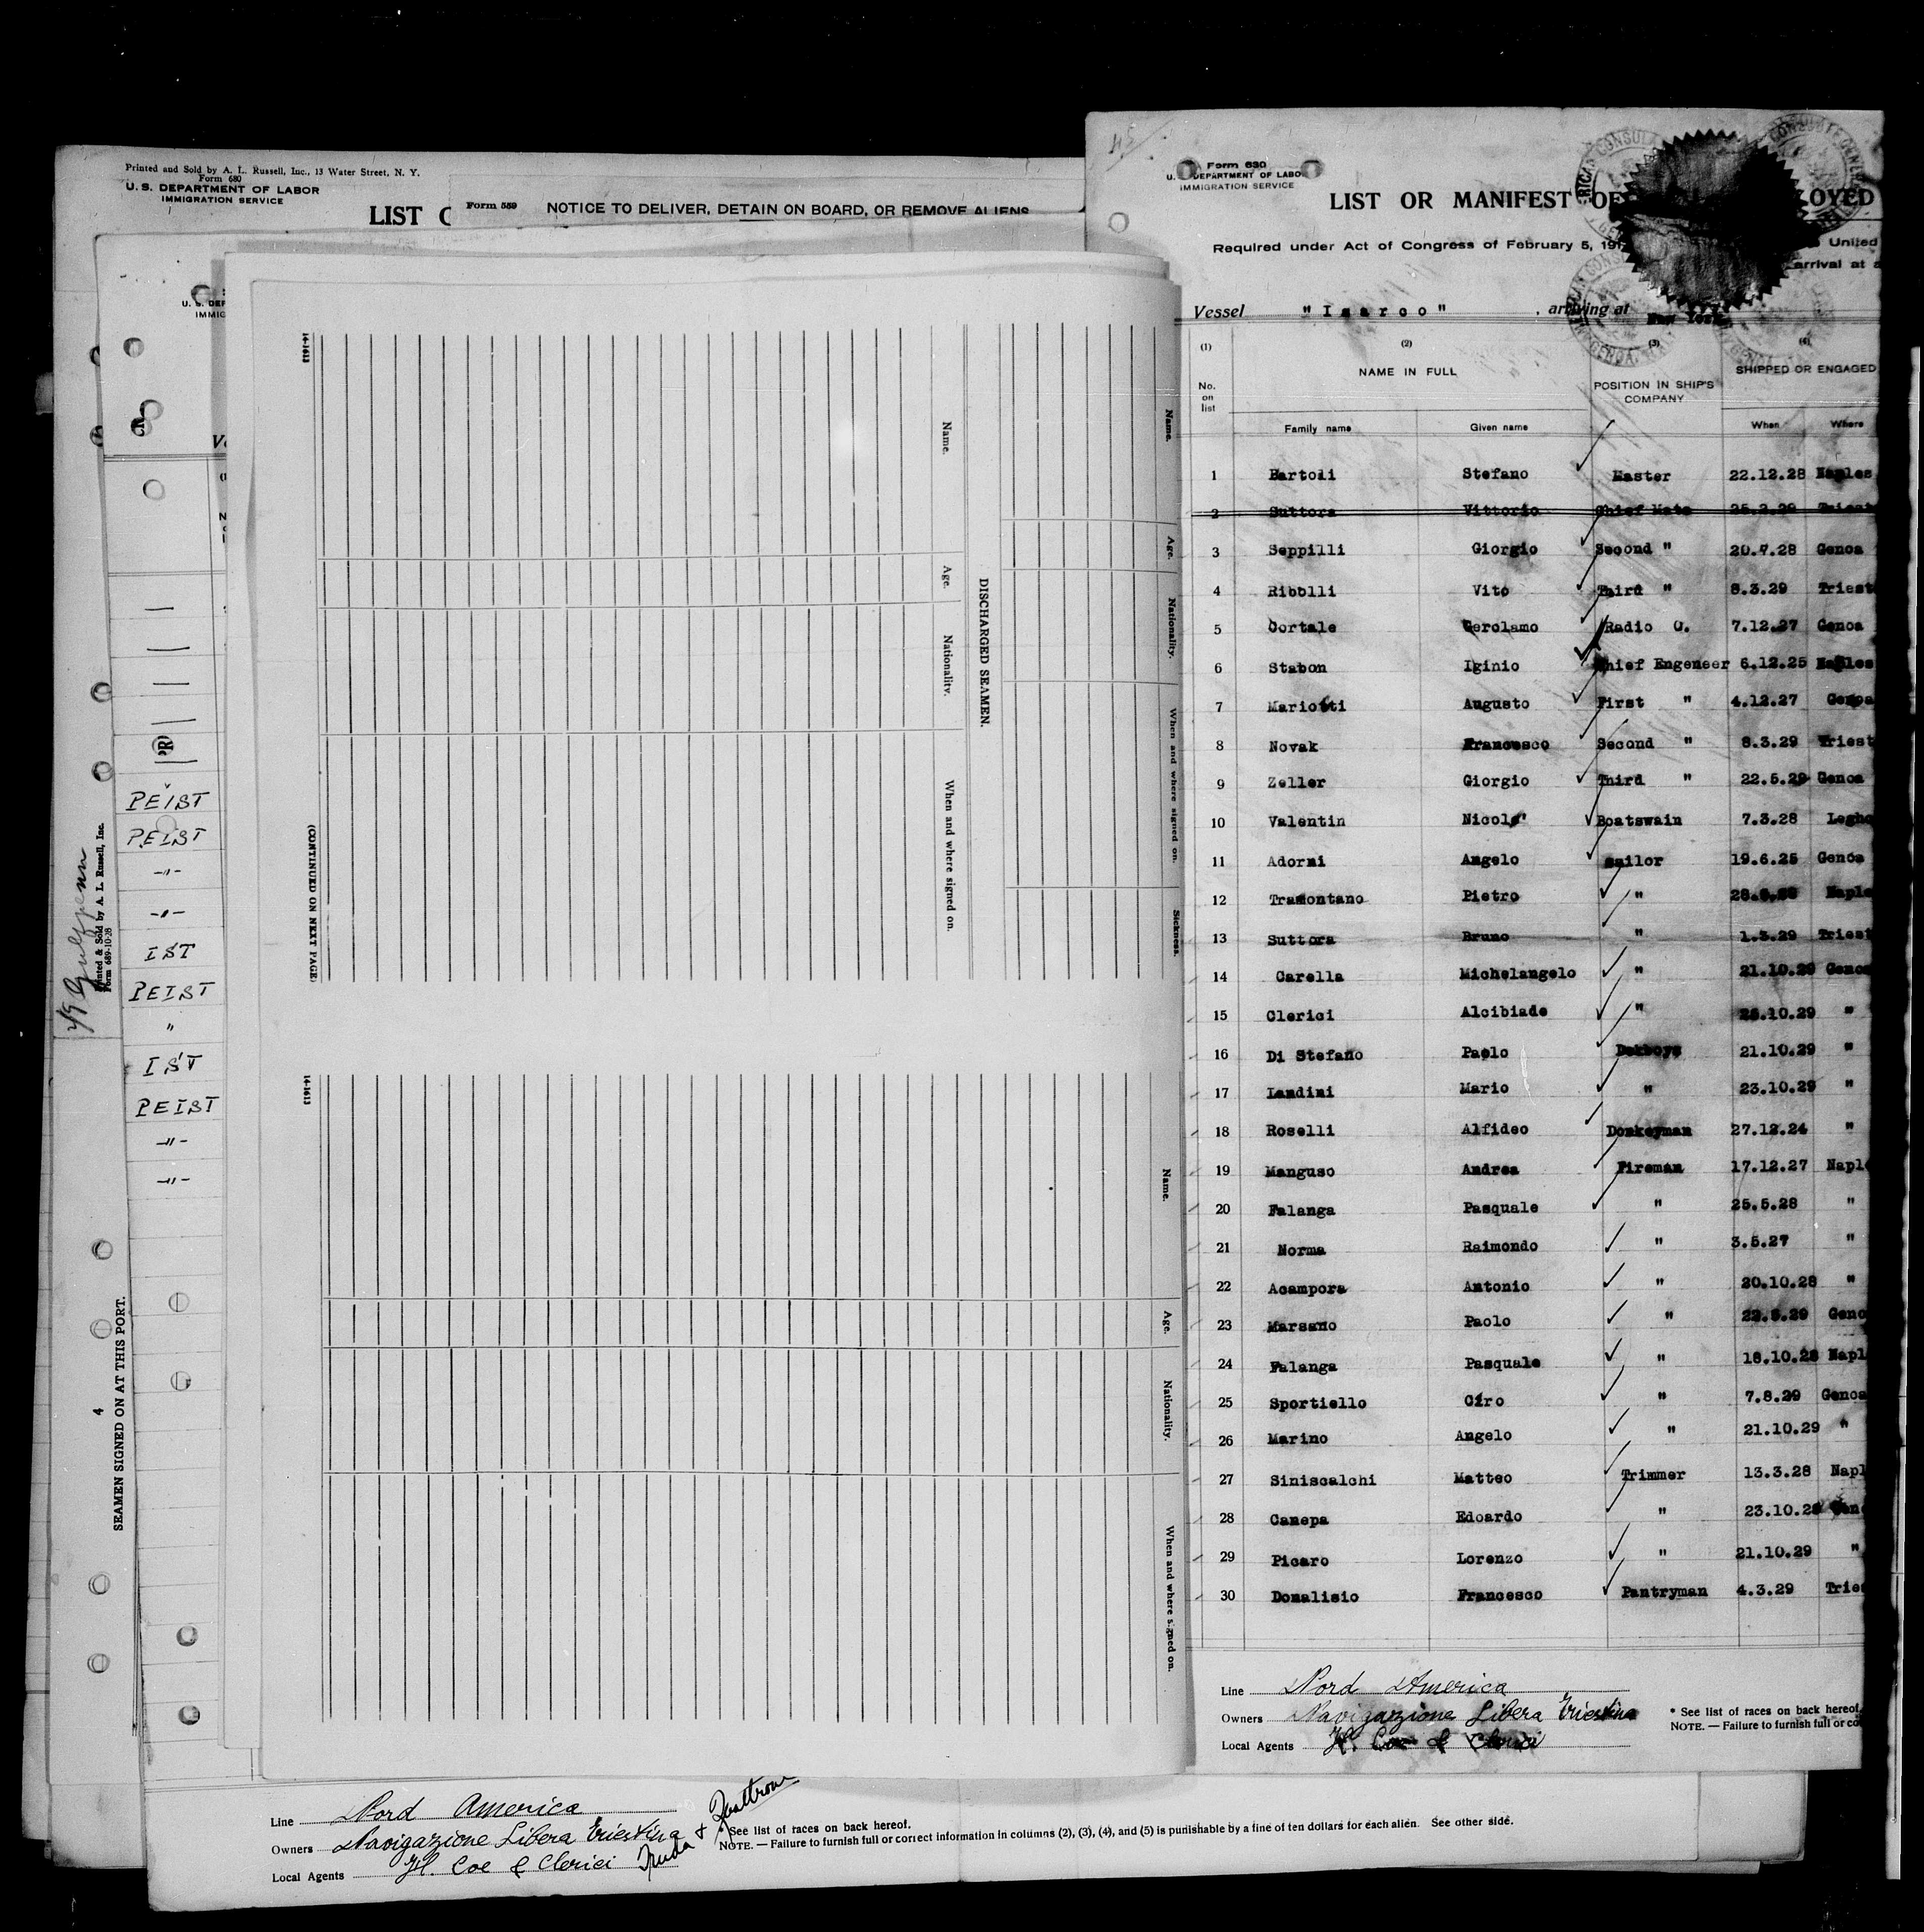 Printed and Sold by A. L. Russell, Inc., 13 Water Street, N. Y.
Form 680
U. S. DEPARTMENT OF LABOR
IMMIGRATION SERVICE
LIST
Form 559 NOTICE TO DELIVER, DETAIN ON BOARD, OR REMOVE ALIENS
PEIST
PEIST
-"-
-"-
IST
PEIST
"
IST
PEIST
-"-
-"-
Printed & Sold by A. L. Russell, Inc.
Form 689-10-28
4
SEAMEN SIGNED ON AT THIS PORT.
14-1613
Name.
Age.
Nationality.
When and where signed on.
(CONTINUED ON NEXT PAGE
DISCHARGED SEAMEN.
Name.
Age.
Nationality.
When and where signed on.
Sickness.
14-1613
Name.
Age.
Nationality.
When and where signed on.
45
Form 630
U. S. DEPARTMENT OF LABO
IMMIGRATION SERVICE
LIST OR MANIFEST OF OYED
Required under Act of Congress of February 5, 191 United
arrival at a
Vessel "Isarco" , arriving at New York
(1) (2) (3) (4)
No. on list NAME IN FULL POSITION IN SHIP'S COMPANY SHIPPED OR ENGAGED
Family name Given name When Where
1 Bartoli Stefano Master 22.12.28 Naples
2 Suttora Vittorio Chief Mate 25.2.29 Triest
3 Seppilli Giorgio Second " 20.7.28 Genoa
4 Ribolli Vito Third " 8.3.29 Triest
5 Cortale Gerolamo Radio O. 7.12.27 Genoa
6 Stabon Iginio Chief Engeneer 6.12.25 Naples
7 Mariotti Augusto First " 4.12.27 Genoa
8 Novak Francesco Second " 8.3.29 Triest
9 Zeller Giorgio Third " 22.5.29 Genoa
10 Valentin Nicolo' Boatswain 7.3.28 Legho
11 Adorni Angelo Sailor 19.6.25 Genoa
12 Tramontano Pietro " Naple
13 Suttora Bruno " 1.3.29 Triest
14 Carella Michelangelo " 21.10.29 Genoa
15 Clerici Alcibiade " .10.29 "
16 Di Stefano Paolo 21.10.29 "
17 Landini Mario " 23.10.29 "
18 Roselli Alfideo Donkeyman 27.12.24 "
19 Manguso Andrea Fireman 17.12.27 Napl
20 Falanga Pasquale " 25.5.28 "
21 Norma Raimondo " 3.5.27 "
22 Acampora Antonio " 20.10.28 "
23 Marsano Paolo " Geno
24 Falanga Pasquale " 18.10.28 Napl
25 Sportiello Ciro " 7.8.29 Genoa
26 Marino Angelo " 21.10.29 "
27 Siniscalchi Matteo Trimmer 13.3.28 Napl
28 Canepa Edoardo " 23.10.2 Gen
29 Picaro Lorenzo " 21.10.29 "
30 Donalisio Francesco Pantryman 4.3.29 Trie
Line Nord America
Owners Navigazione Libera Triestina
Local Agents H. Coe & Clerici
* See list of races on back hereof.
NOTE. — Failure to furnish full or co
Line Nord America
Owners Navigazione Libera Triestina
Local Agents H. Coe & Clerici
* See list of races on back hereof.
NOTE. — Failure to furnish full or correct information in columns (2), (3), (4), and (5) is punishable by a fine of ten dollars for each alien. See other side.